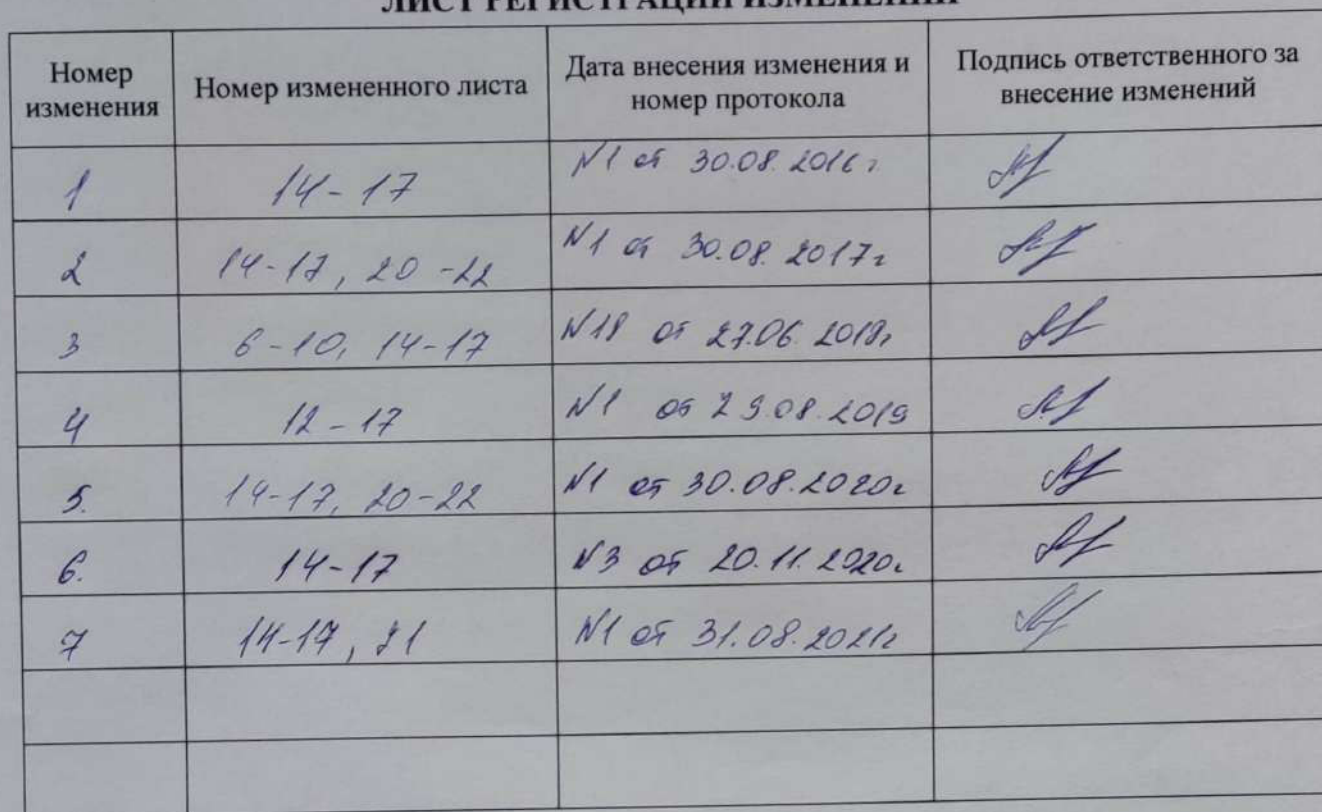 ЛИСТ РЕГИСТРАЦИИ ИЗМЕНЕНИЙ
Номер изменения Номер измененного листа Дата внесения изменения и номер протокола Подпись ответственного за внесение изменений
1 14-17 №1 от 30.08.2016г
2 14-17, 20-22 №1 от 30.08.2017г
3 6-10, 14-17 №18 от 27.06.2018г
4 12-17 №1 от 29.08.2019
5. 14-17, 20-22 №1 от 30.08.2020г
6. 14-17 №3 от 20.11.2020г
7 14-17, 21 №1 от 31.08.2021г